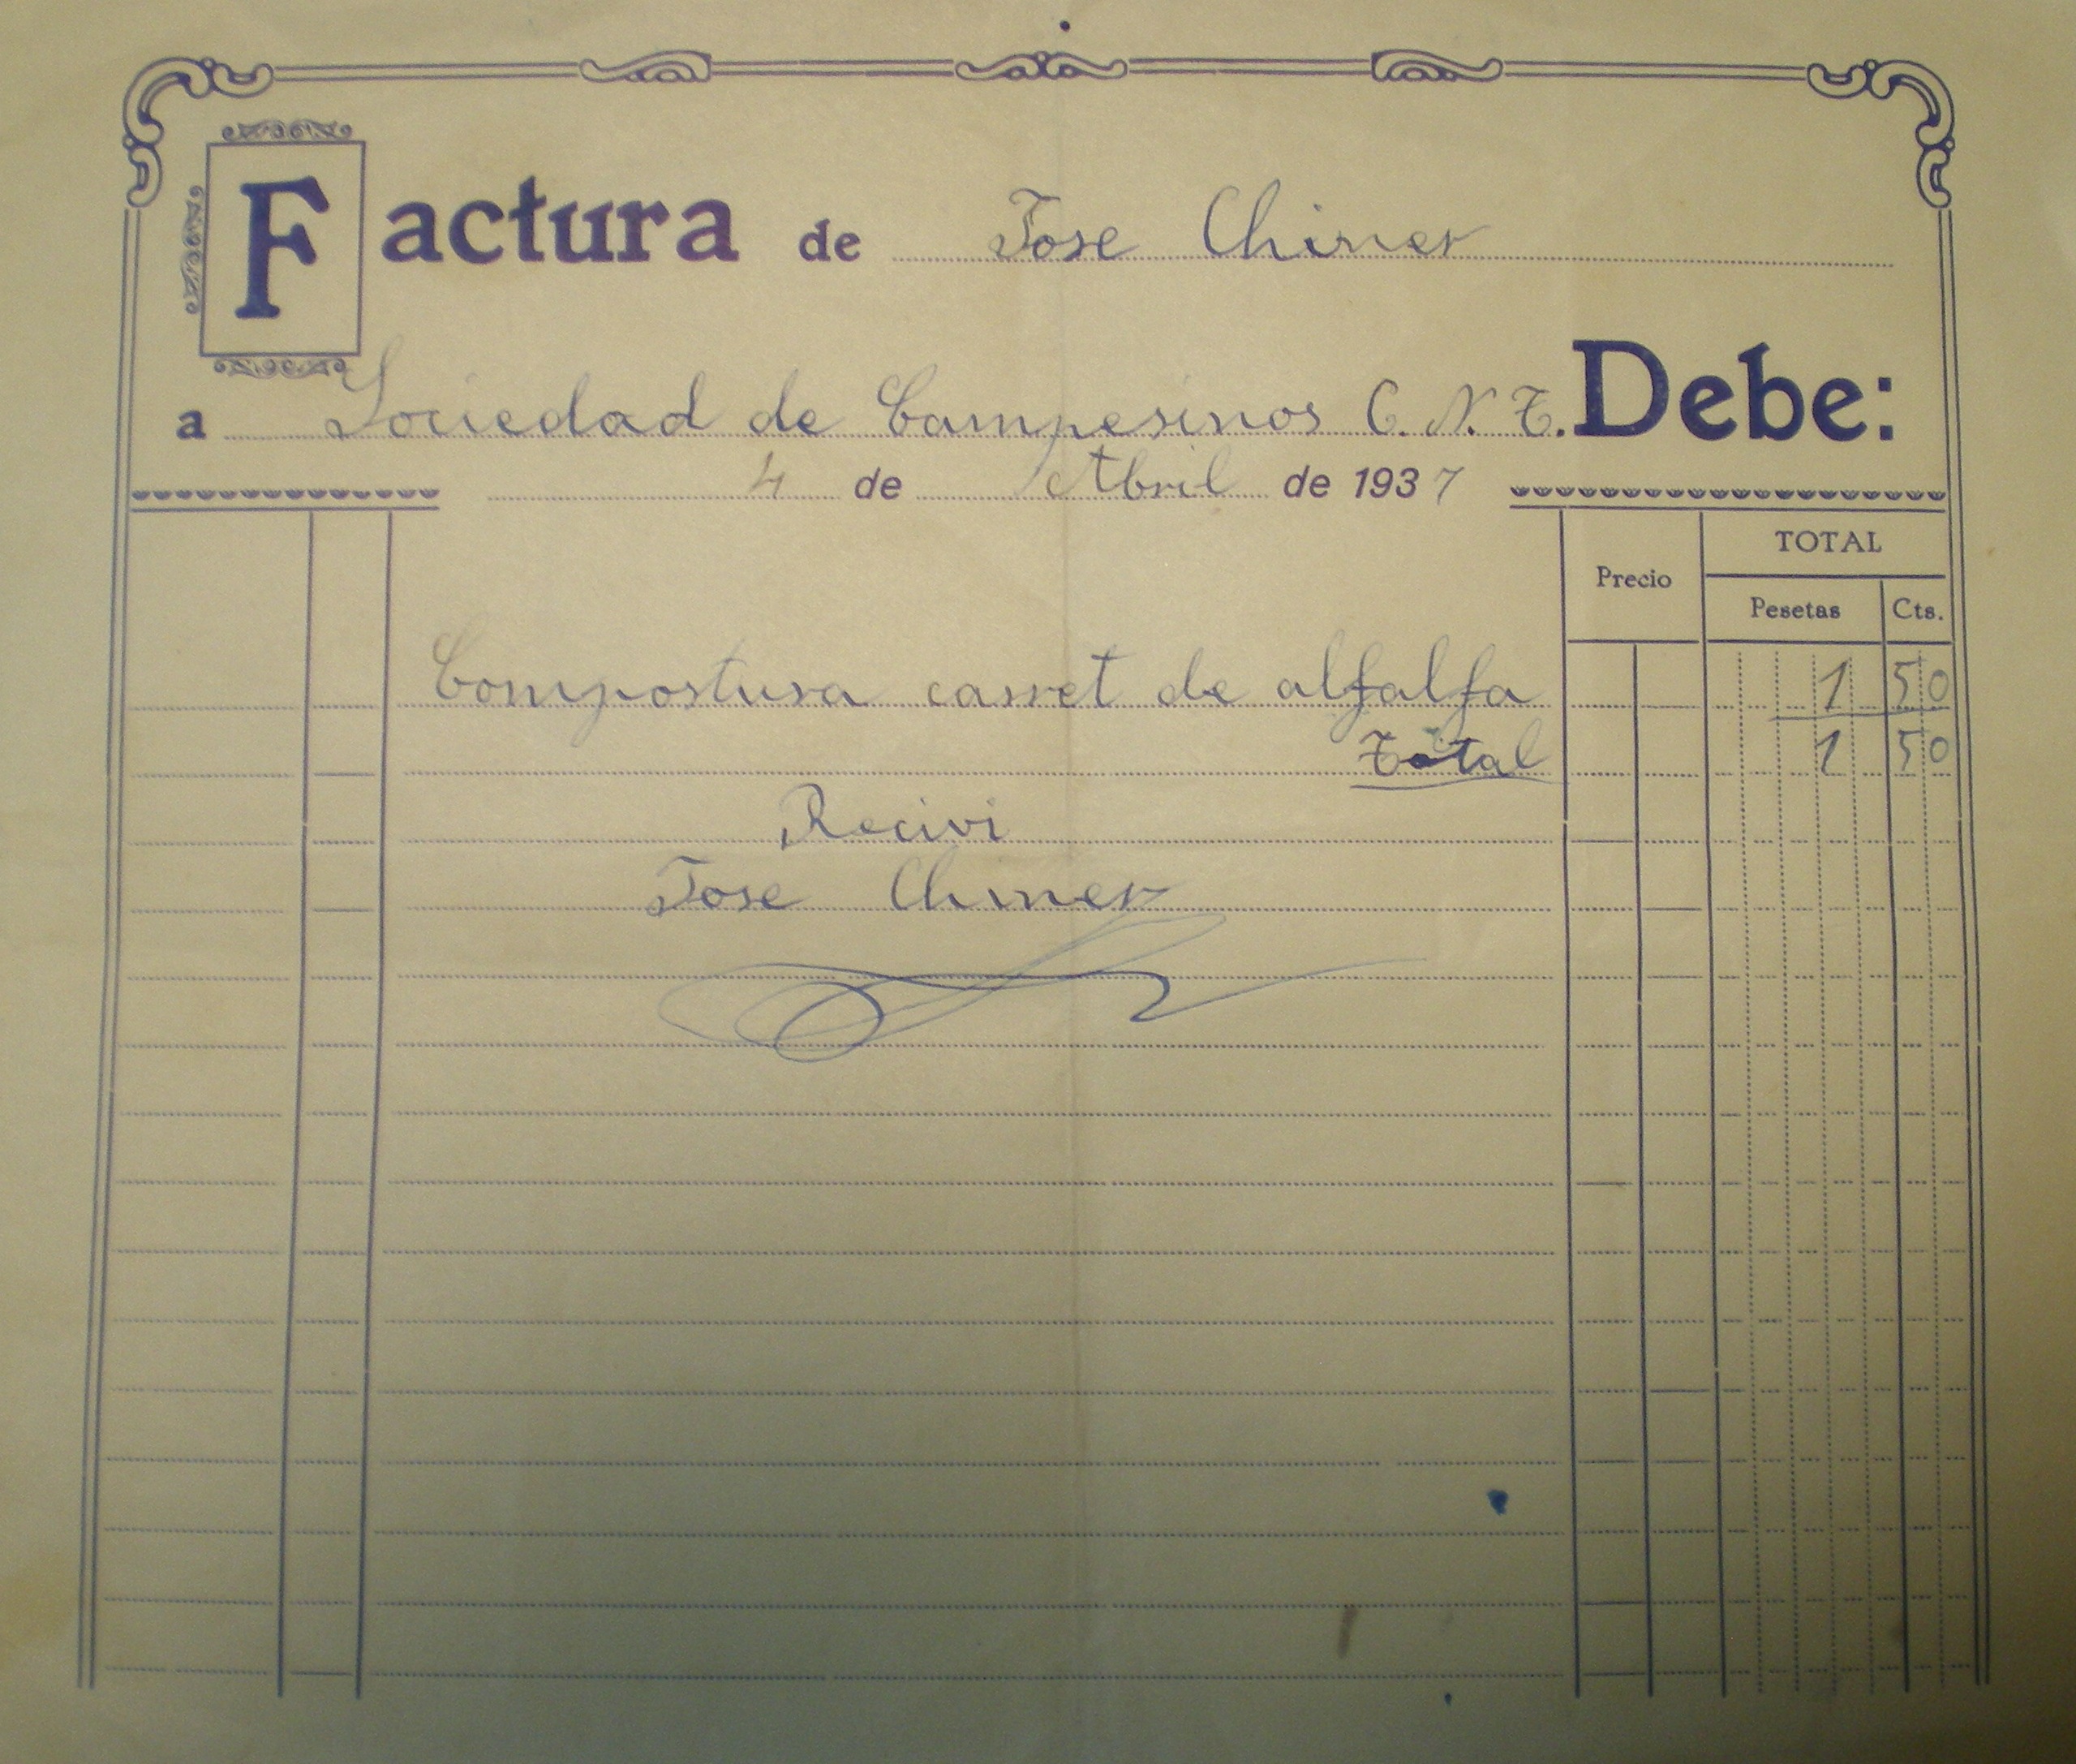 Factura de Jose Chiner
a Sociedad de Campesinos C. N. T. Debe:
4 de Abril de 1937
Precio TOTAL
Pesetas Cts.
Compostura carret de alfalfa 1 50
Total 1 50
Recivi
Jose Chiner